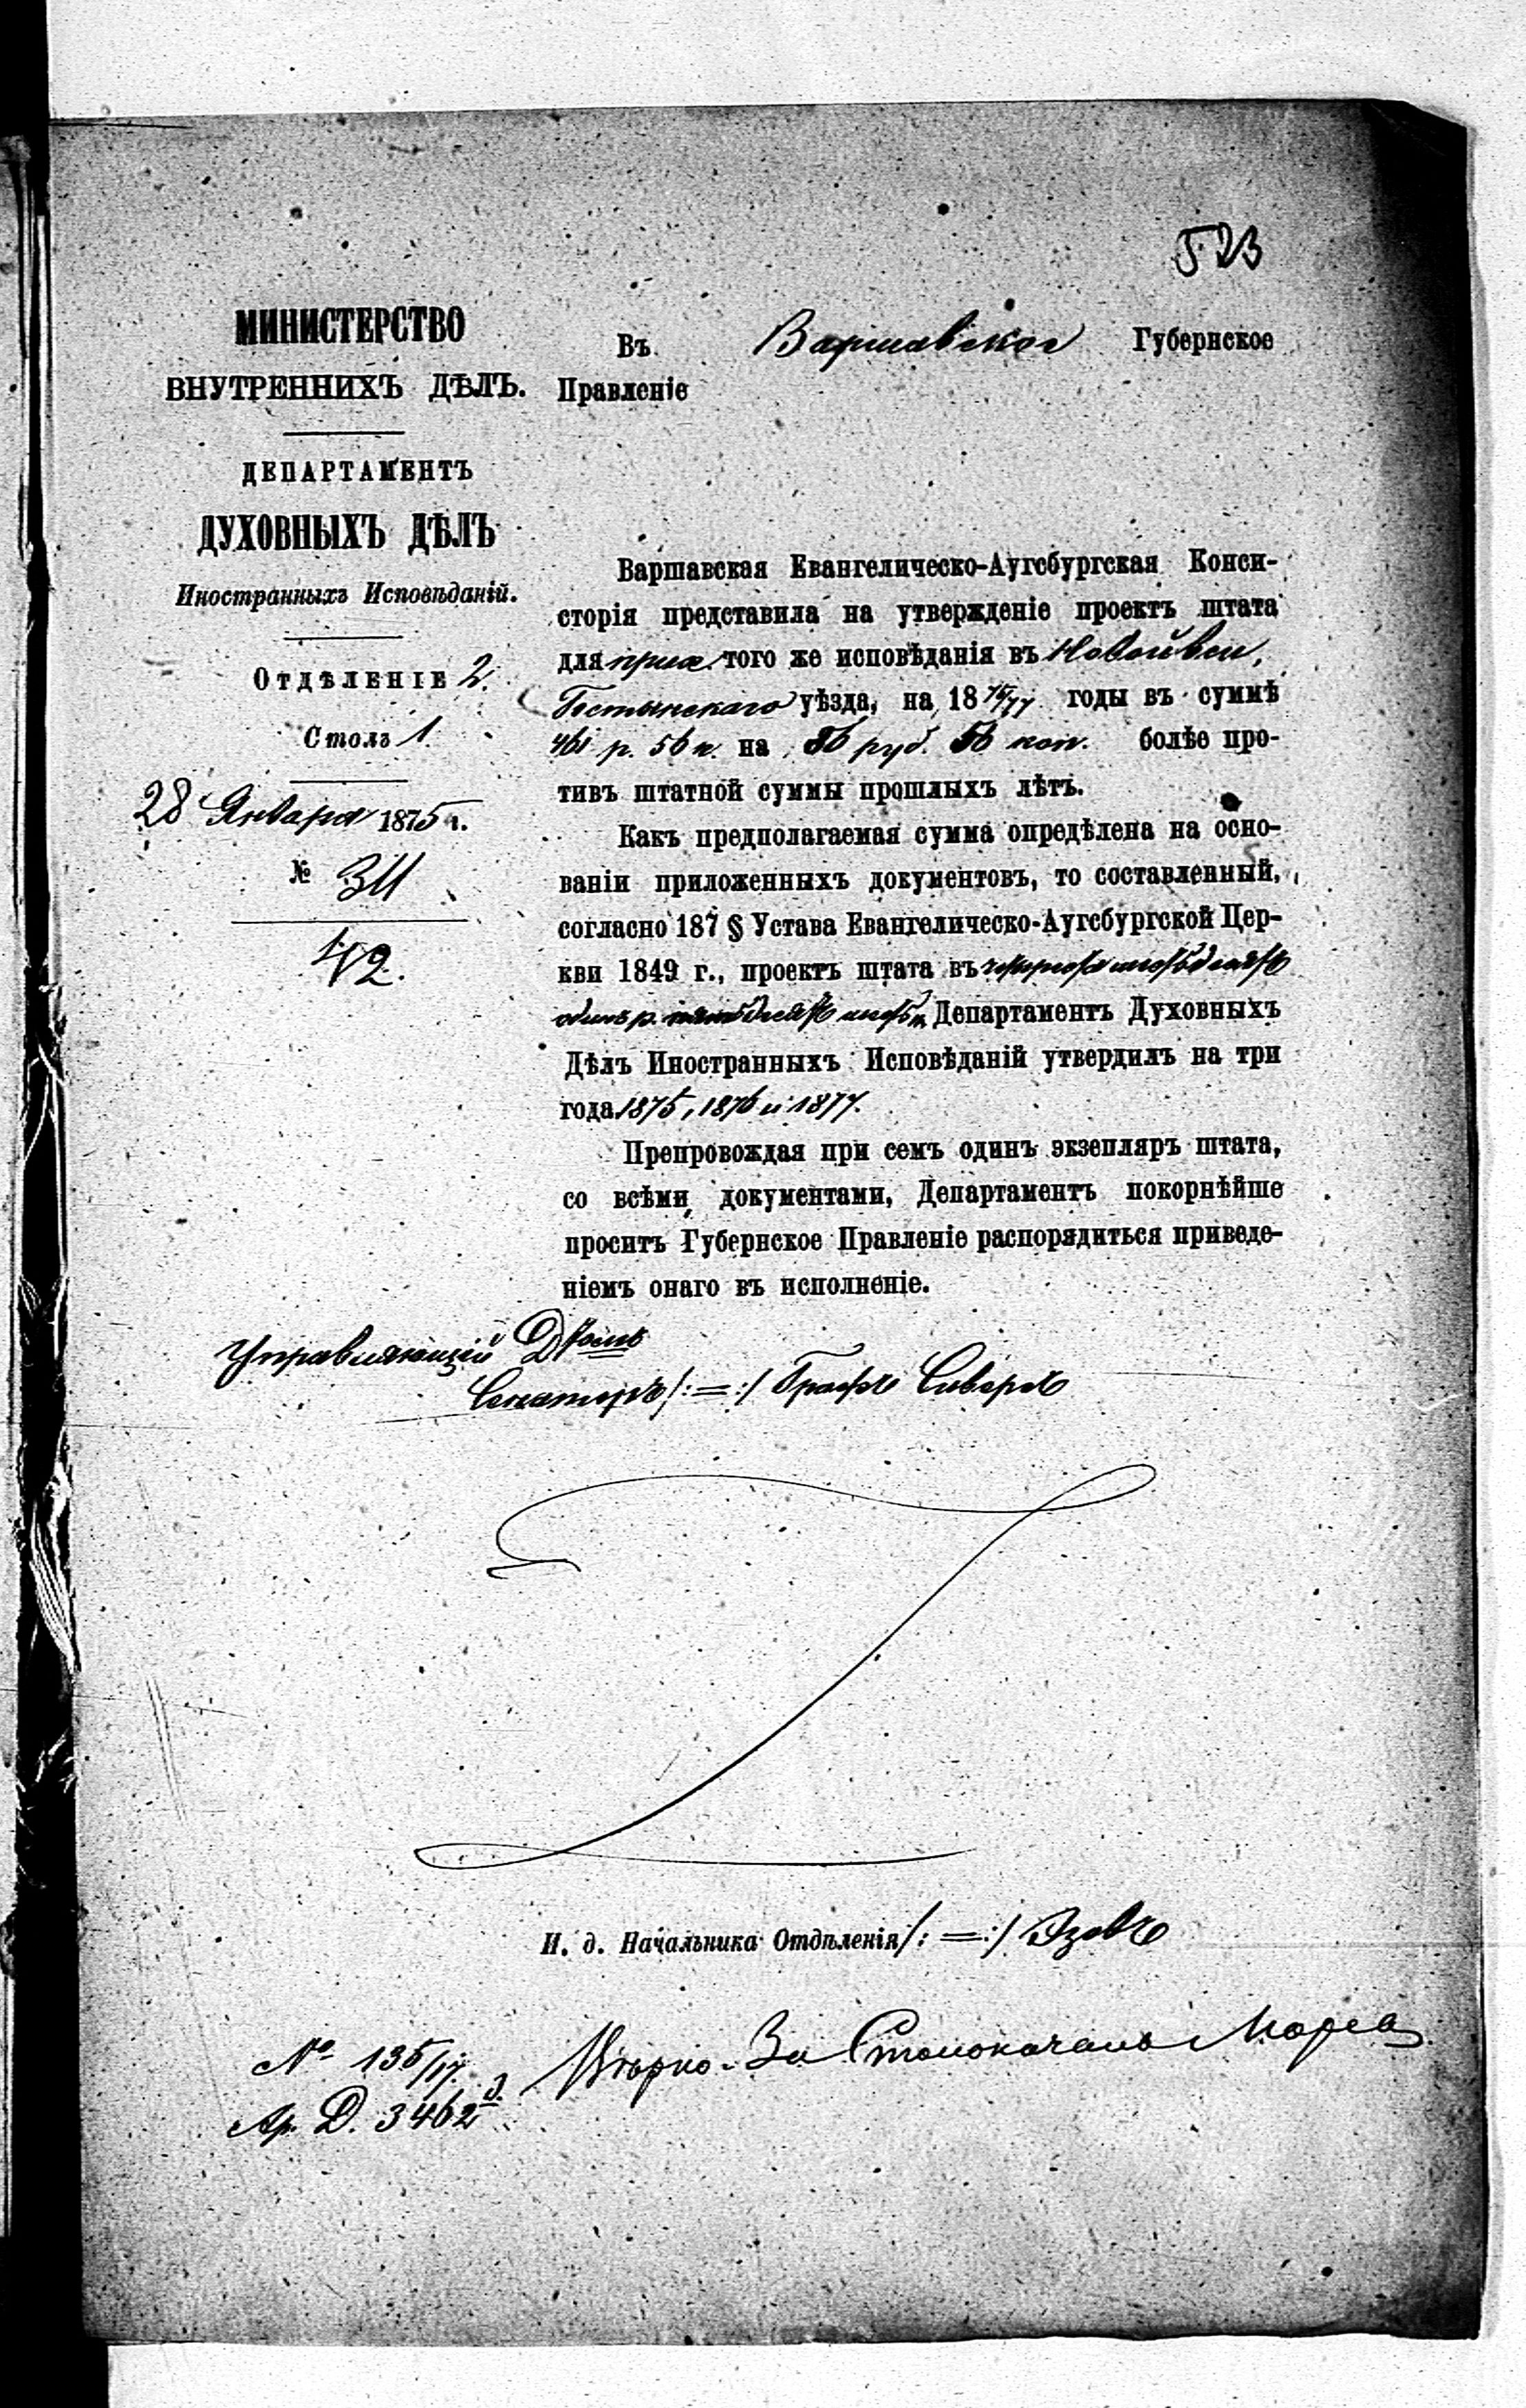 523
МИНИСТЕРСТВО
ВНУТРЕННИХЪ ДѢЛЪ.
ДЕПАРТАМЕНТЪ
ДУХОВНЫХЪ ДѢЛЪ
Иностранныхъ Исповѣданій.
Отдѣленіе 2.
Столъ 1.
28 Января 1875 г.
№ 311
42.
Въ Варшавское Губернское
Правленіе
Варшавская Евангелическо-Аугсбургская Конси-
сторія представила на утвержденіе проектъ штата
для прих. того же исповѣданія въ Новойвси,
Гостынскаго уѣзда, на 1875/77 годы въ суммѣ
461 р. 56 к. на 86 руб. 56 коп. болѣе про-
тивъ штатной суммы прошлыхъ лѣтъ.
Какъ предполагаемая сумма опредѣлена на осно-
ваніи приложенныхъ документовъ, то составленный,
согласно 187 § Устава Евангелическо-Аугсбургской Цер-
кви 1849 г., проектъ штата въ четыреста шестьдесятъ
одинъ р. пятьдесятъ шесть к. Департаментъ Духовныхъ
Дѣлъ Иностранныхъ Исповѣданій утвердилъ на три
года 1875, 1876 и 1877.
Препровождая при семъ одинъ экзепляръ штата,
со всѣми документами, Департаментъ покорнѣйше
проситъ Губернское Правленіе распорядиться приведе-
ніемъ онаго въ исполненіе.
Управляющій Д-томъ
Сенаторъ /:=:/ Графъ Сиверсъ
И. д. Начальника Отдѣленія /:=:/ Эзовъ
Вѣрно. За Столоначаль
№ 135/17.
Ар. Д. 3462